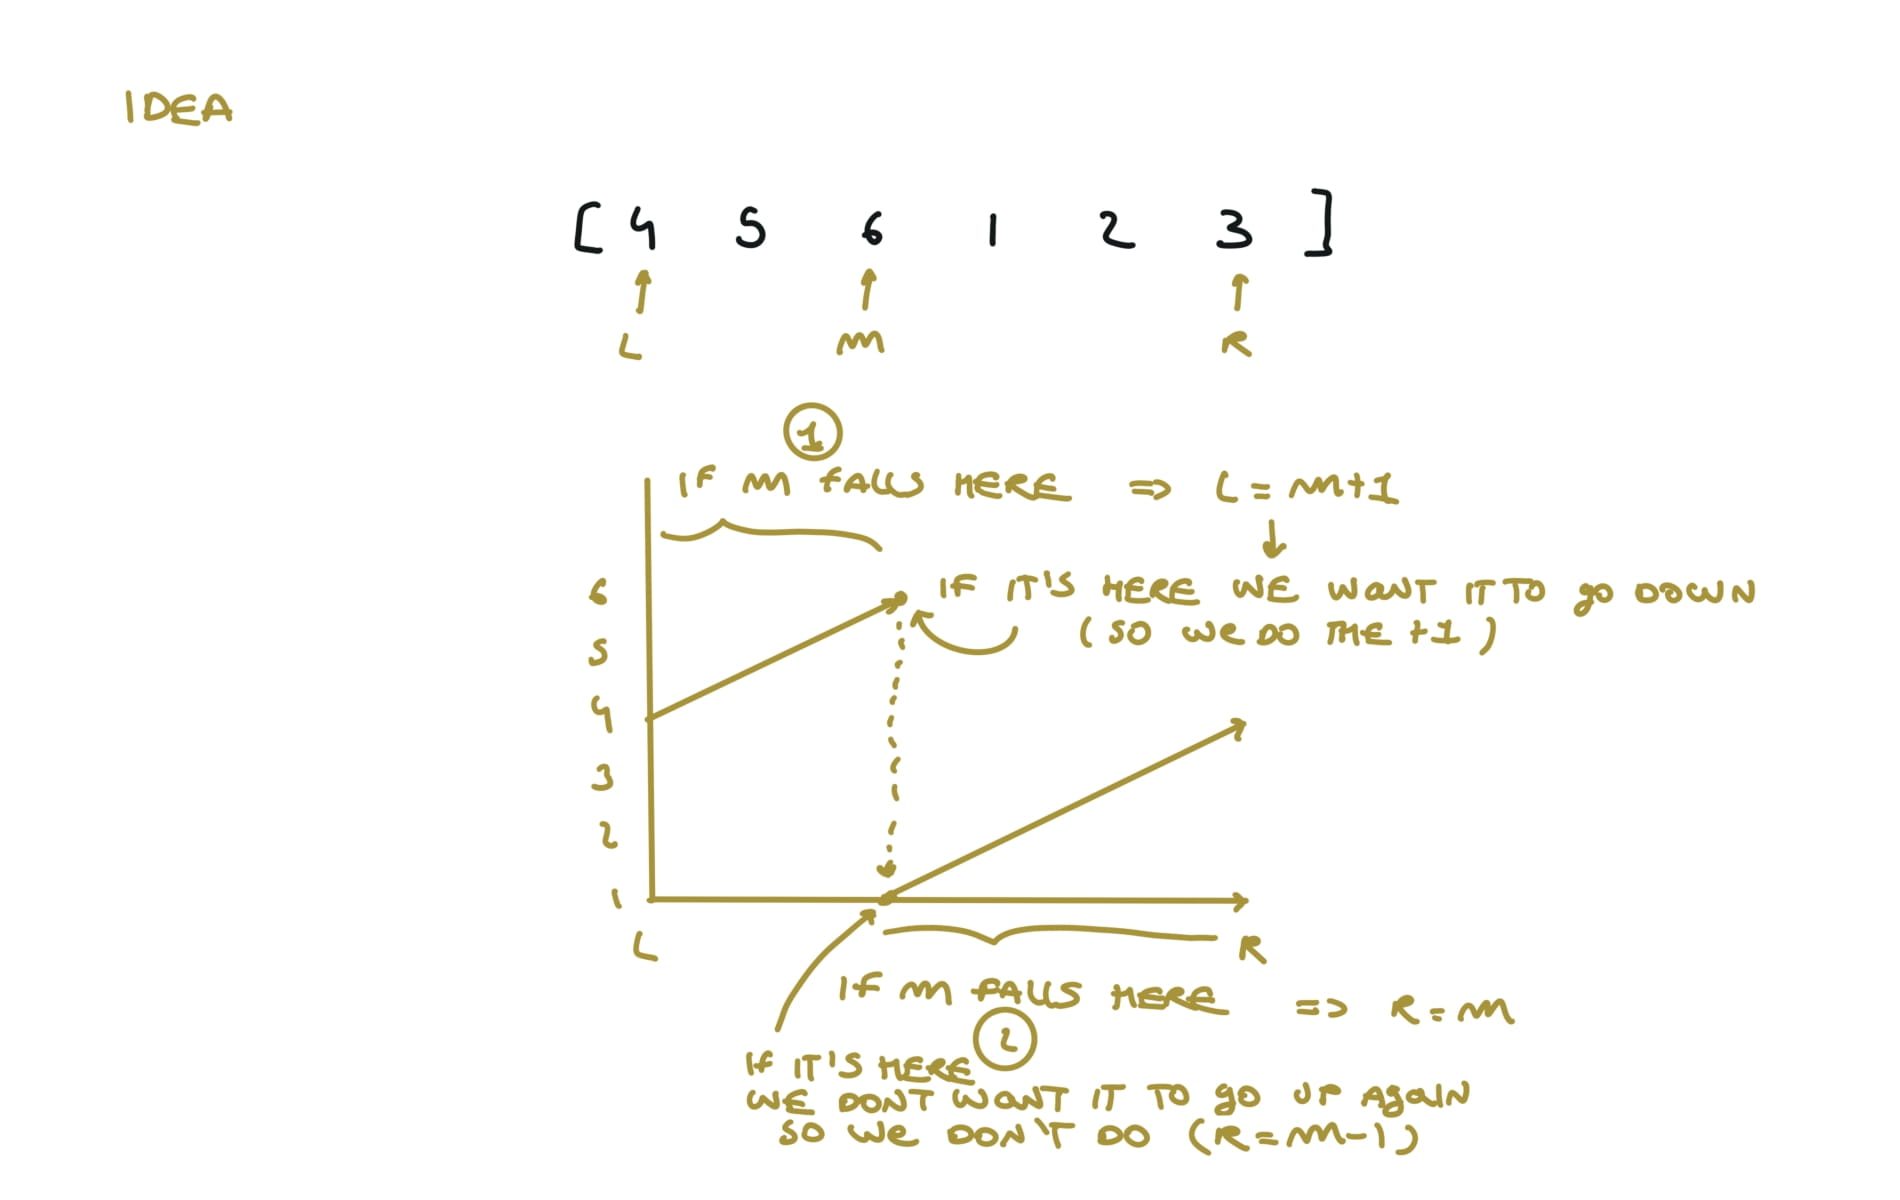 IDEA
[ 4 5 6 1 2 3 ]
L m R
1
IF m FALLS HERE => L = m+1
IF IT'S HERE WE WANT IT TO go DOWN
(SO we DO THE +1)
6
5
4
3
2
1
L R
IF m FALLS HERE => R = m
2
IF IT'S HERE
WE DONT WANT IT TO go UP AgaIN
SO we DON'T DO (R=m-1)